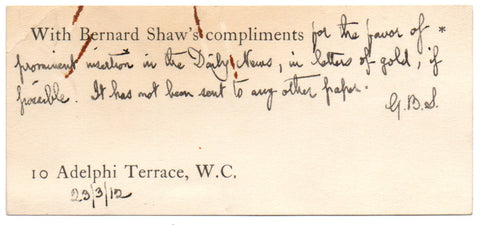 With Bernard Shaw's compliments for the favor of *
prominent insertion in the Daily News, in letters of gold, if
possible. It has not been sent to any other paper.
G.B.S.
10 Adelphi Terrace, W.C.
23/3/12